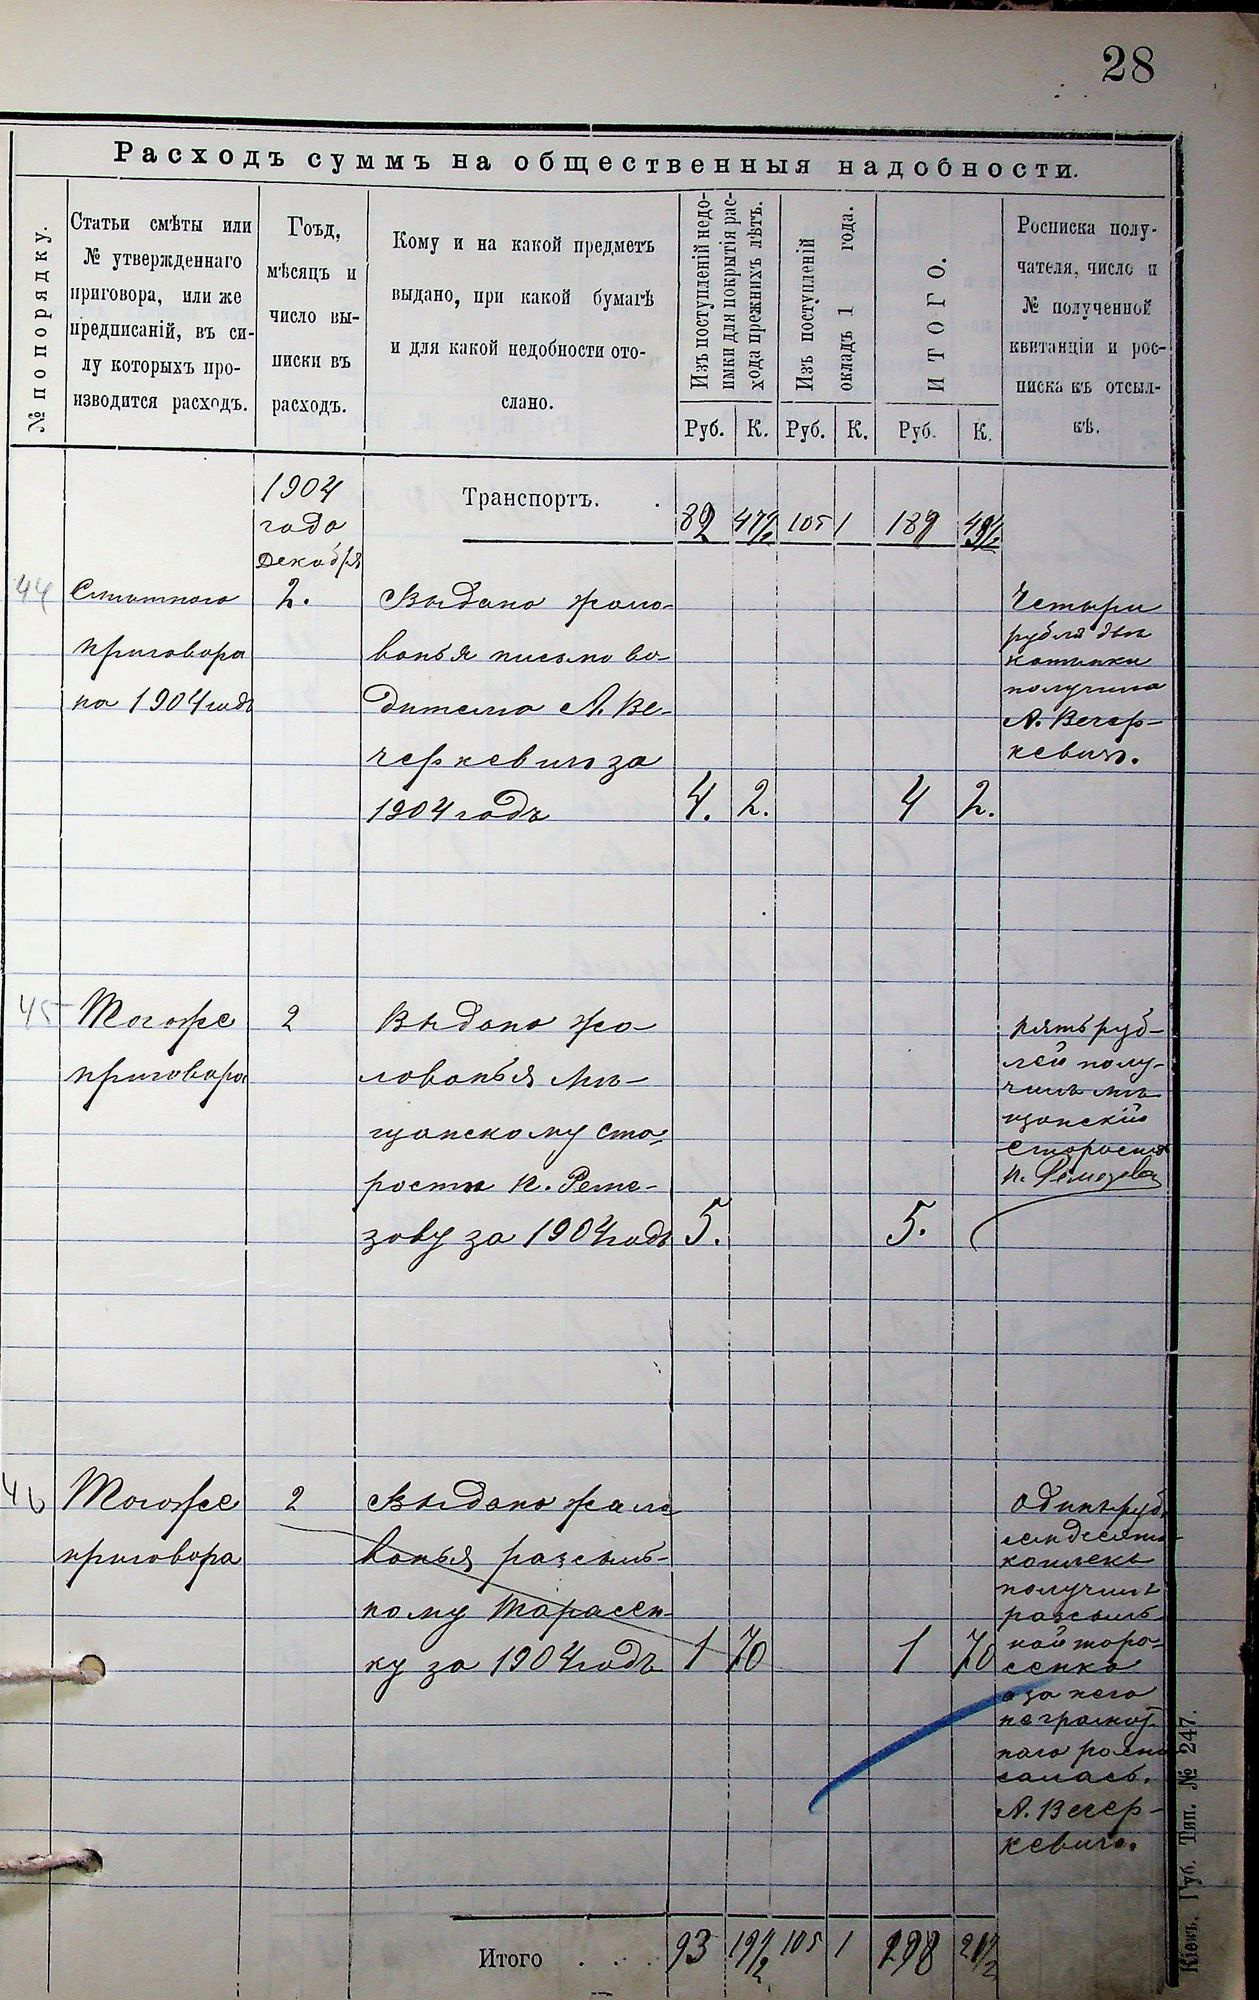 28
Расходъ суммъ на общественныя надобности.
№ по порядку.
Статьи смѣты или
№ утвержденнаго
приговора, или же
предписаній, въ си-
лу которыхъ про-
изводится расходъ.
Гоъд,
мѣсяцъ и
число вы-
писки въ
расходъ.
Кому и на какой предметъ
выдано, при какой бумагѣ
и для какой недобности ото-
слано.
Изъ поступленій недо-
имки для покрытія рас-
хода прежнихъ лѣтъ.
Изъ поступленій
окладъ 1 года.
ИТОГО.
Росписка полу-
чателя, число и
№ полученной
квитанціи и рос-
писка въ отсыл-
кѣ.
Руб. К. Руб. К. Руб. К.
1904
года
Декабря
Транспортъ. .
82 47½ 105 1 189 49½
44 Смѣтного 2. Выдано жало-
приговора ванья письмово-
на 1904 годъ дителю А. Ве-
черкевичъ за
1904 годъ 4. 2. 4 2.
Четыри
рубля двѣ
копѣйки
получила
А. Вечер-
кевичъ.
45 Тогоже 2 Выдано жа
приговора лованья мѣ-
щанскому ста-
ростѣ К. Реме-
зову за 1904 годъ 5. 5.
пять руб-
лей полу-
чилъ мѣ
щанскій
староста
К. Ремезовъ
46 Тогоже 2 Выдано жало
приговора ванья разсыль-
ному Тарасен-
ку за 1904 годъ 1 70 1 70
Одинъ руб.
семдесятъ
копѣекъ
получилъ
разсыль
ной Тара-
сенко
а за него
неграмот-
наго роспи
салась.
А. Вечер-
кевичъ.
Итого . . . 93 19½ 105 1 198 21½
Кіевъ, Губ. Тип. № 247.